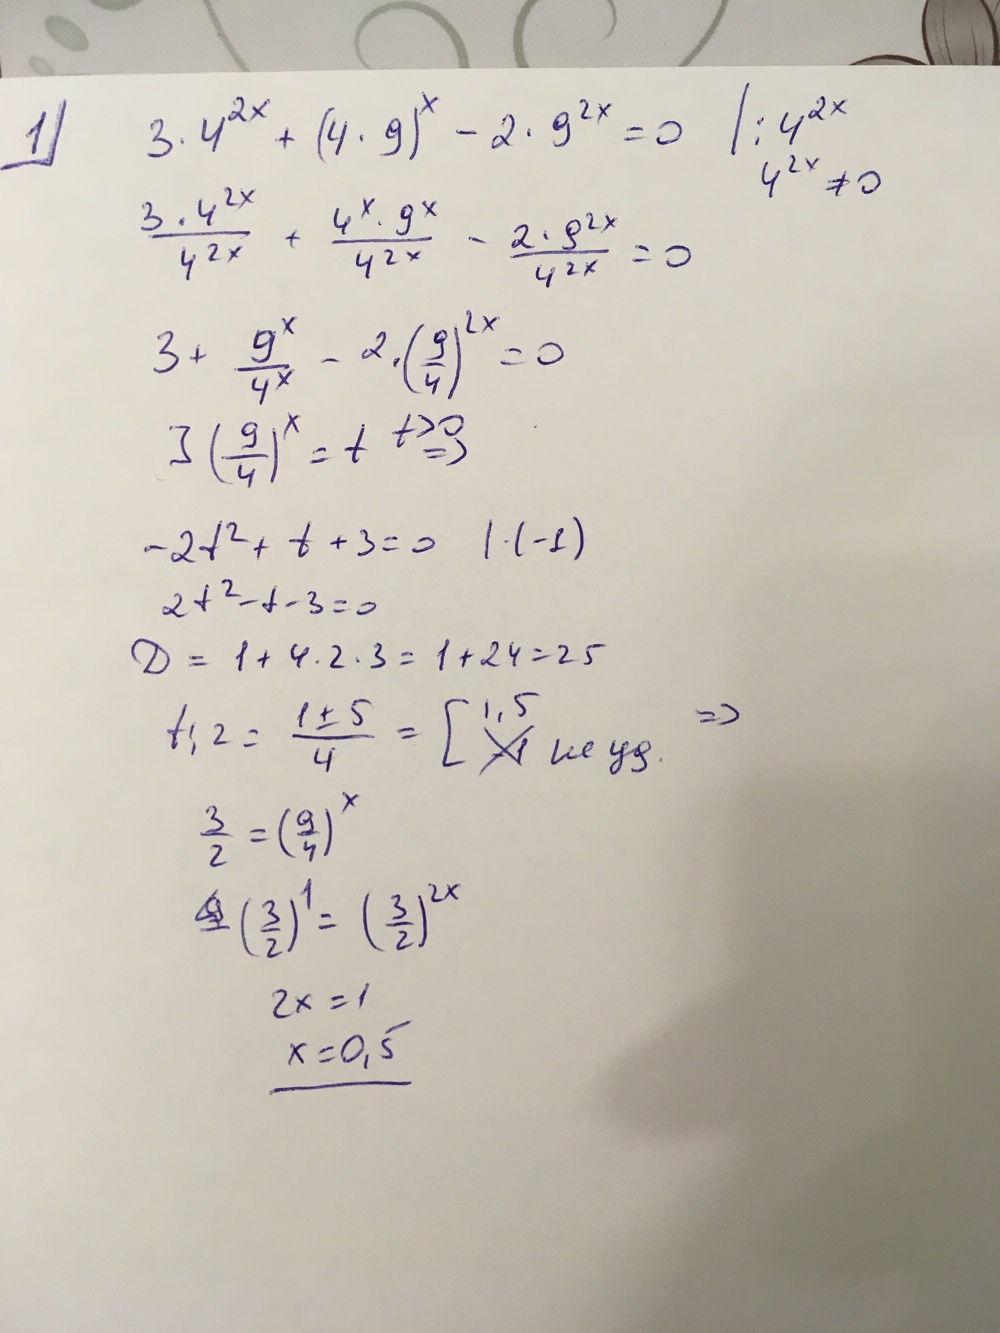 1) 3·4^2x + (4·9)^x − 2·9^2x = 0 | : 4^2x
4^2x ≠ 0
3·4^2x/4^2x + 4^x·9^x/4^2x − 2·9^2x/4^2x = 0
3 + 9^x/4^x − 2·(9/4)^2x = 0
] (9/4)^x = t t>0 =>
−2t² + t + 3 = 0 | ·(−1)
2t² − t − 3 = 0
D = 1 + 4·2·3 = 1 + 24 = 25
t₁,₂ = (1 ± 5)/4 = [ 1,5 =>
-1 не уд.
3/2 = (9/4)^x
(3/2)^1 = (3/2)^2x
2x = 1
x = 0,5